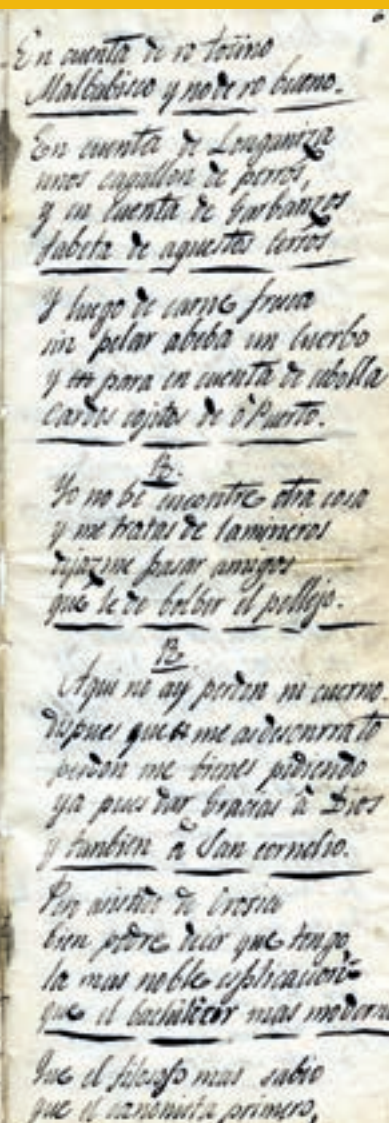 En cuenta de ro tozino
Malbabisco y no de ro bueno.
En cuenta de Longaniza
unos cagallon de perros,
y en cuenta de Garbanzos
fabeta de aquestos cerros
Y luego de carne fresca
sin pelar abeba un cuerbo
y para en cuenta de cebolla
Cardos cojitos de o Puerto.
B.
Yo no bi encontré otra cosa
y me tratas de lamineros
dijazme pasar amigos
que le de bolber el pellejo.
B
Aqui no ay perdon ni cuerno.
dispues que me as desonrrato
perdon me bienes pidiendo
ya pues dar gracias á Dios
y tanbien á San cornelio.
de Orosia
bien podre decir que tengo
la mas noble esplicacion
que el bachiller mas moderno
Que el filosofo mas sabio
que el canonista primero,